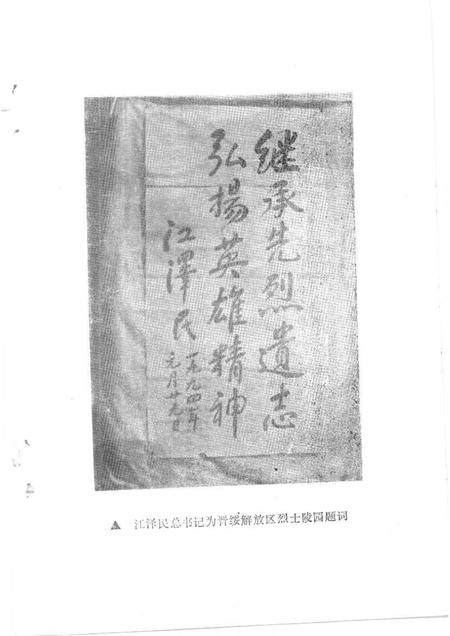 继承先烈遺志
弘揚英雄精神
江澤民
一九九四年
元月廿九日
江泽民总书记为晋绥解放区烈士陵园题词